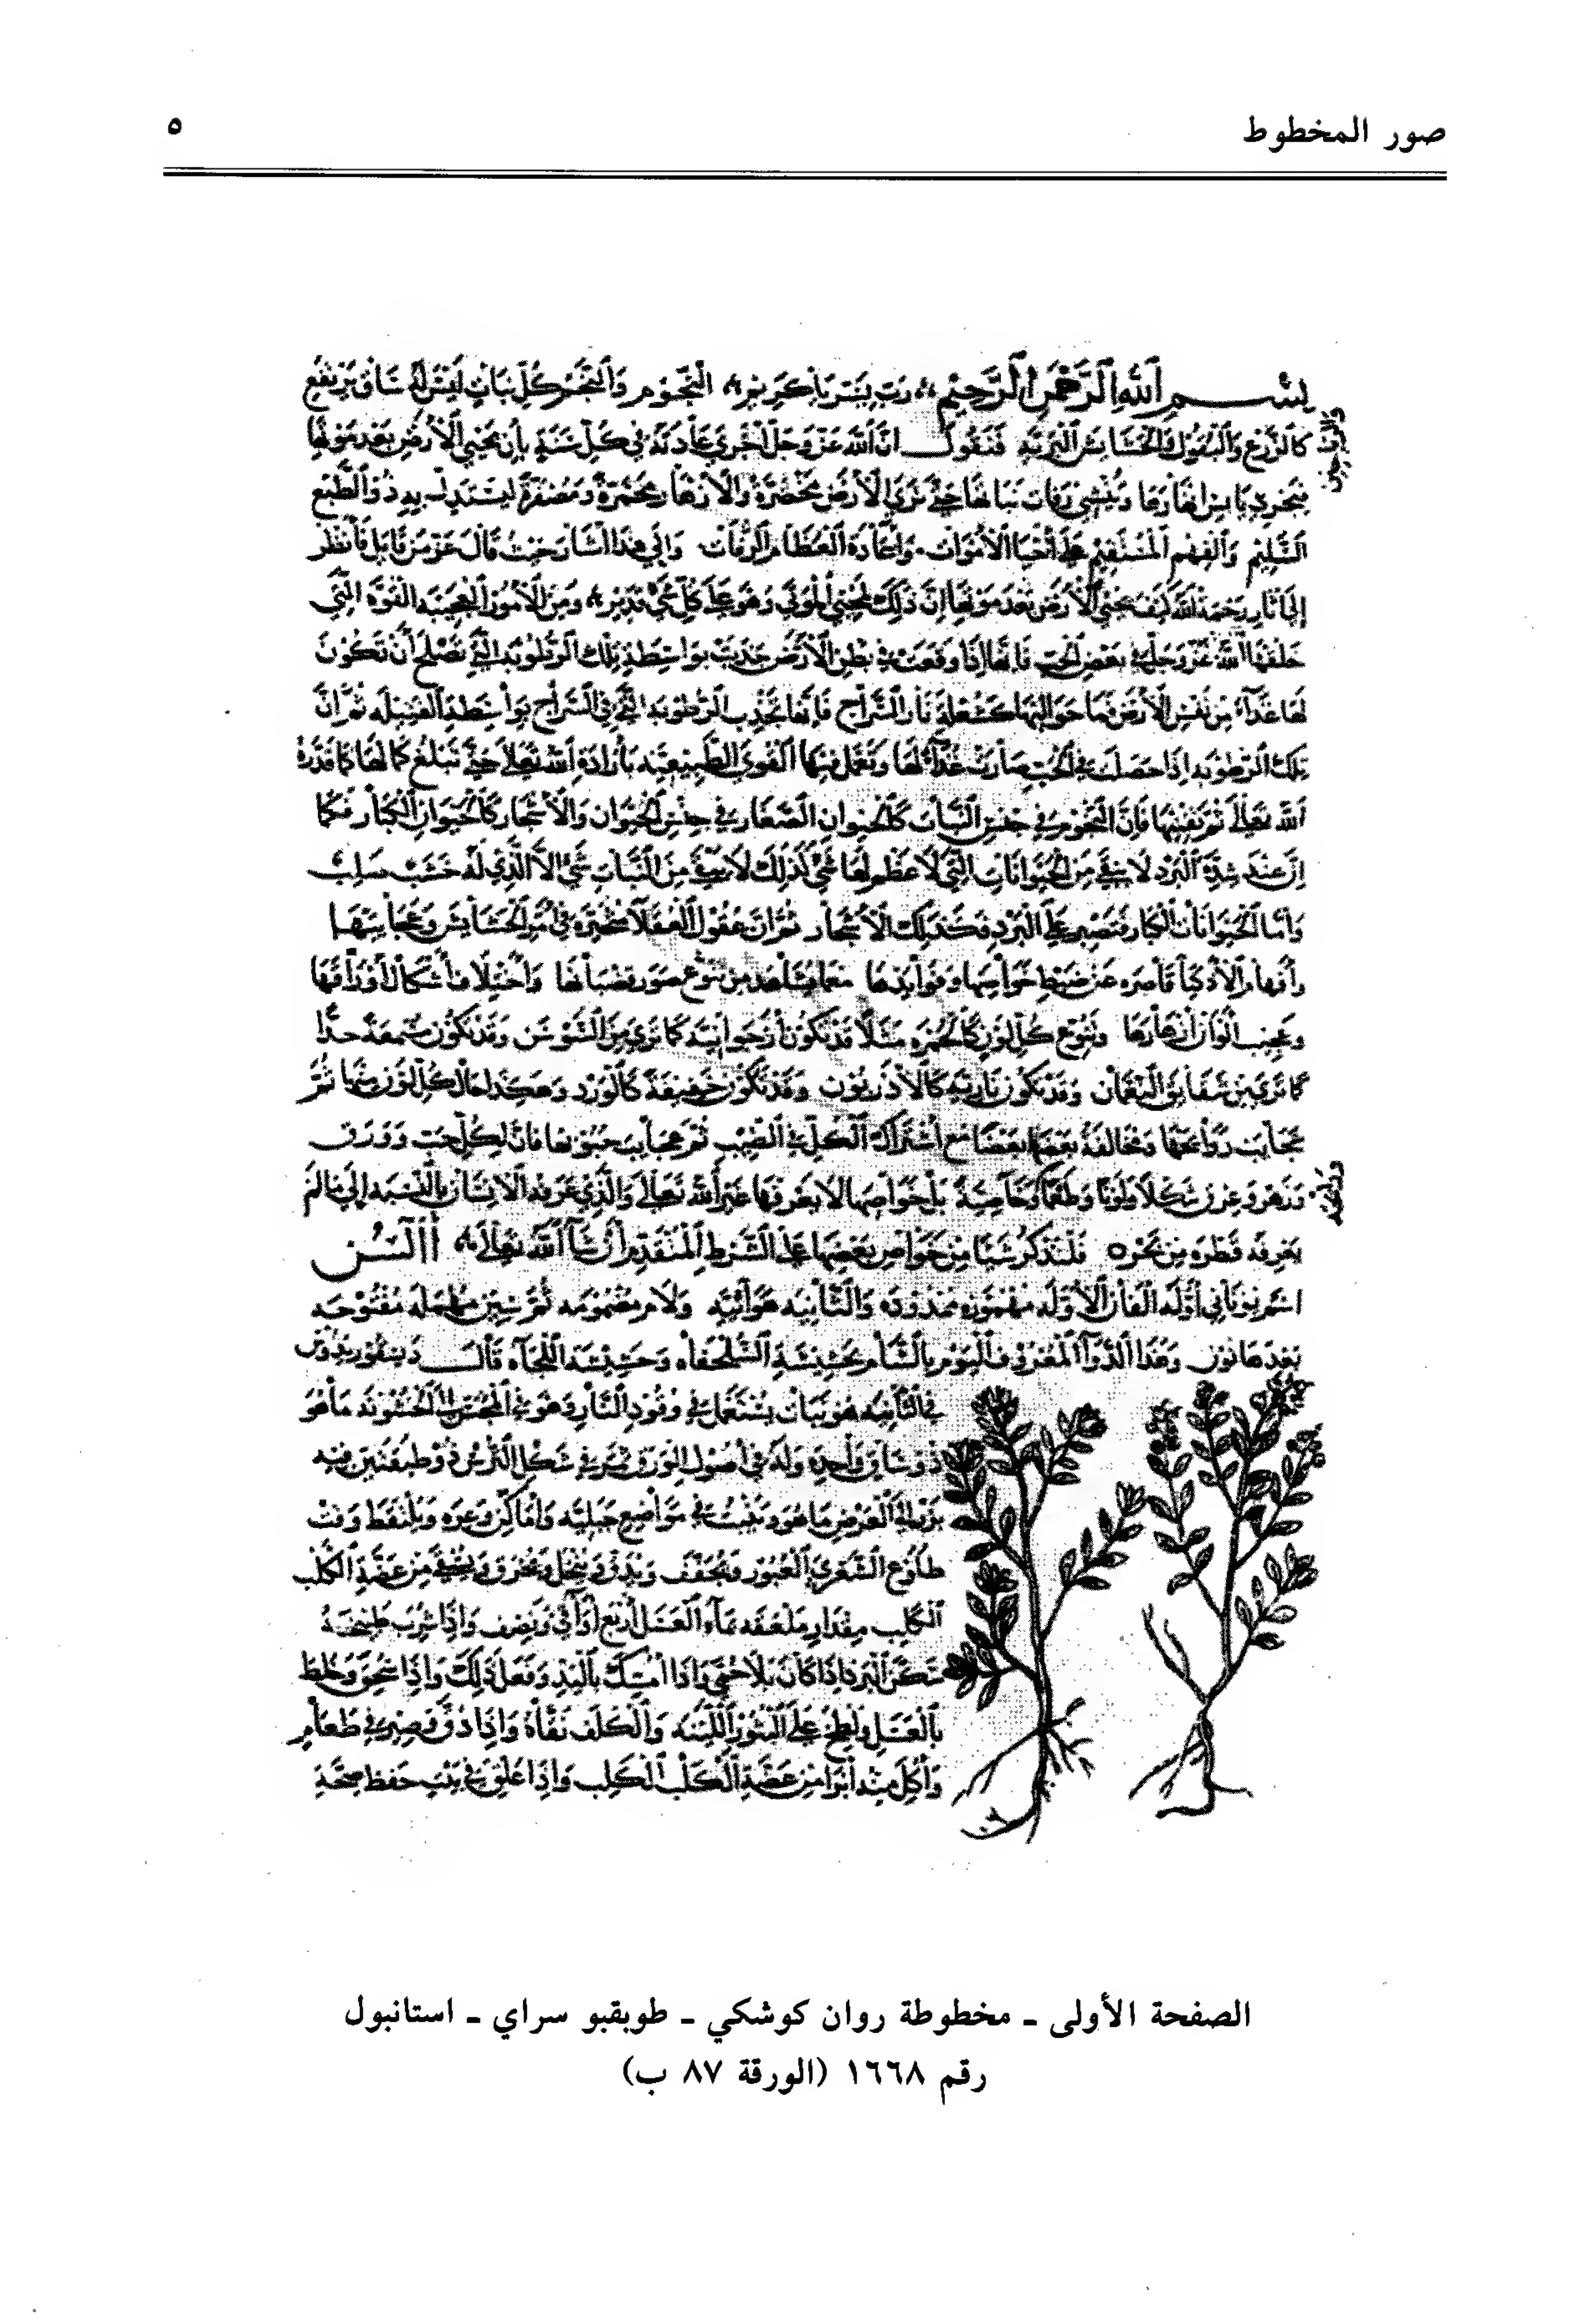 صور المخطوط
٥
بسم الله الرحمن الرحيم رب يسر يا كريم النجوم والنجم كل نبات ليس له ساق يرتفع
كالزرع والبقول والحشايش البرية فنقول ان الله عز وجل اجرى عادته في كل سنة بان يحيي الارض بعد موتها
فيجري يابس انهارها وينشي رفات نباتها حتى ترى الارض مخضرة والازهار محمرة ومصفرة ليستدل به ذو الطبع
السليم والفهم المستقيم على احيا الاموات واعادة العظام الرفات والى هذا اشار حيث قال عز من قايل فانظر
الى اثار رحمة الله كيف يحيي الارض بعد موتها ان ذلك لمحيي الموتى وهو على كل شي قدير ومن الامور العجيبة القوة التي
خلقها الله عز وجل في بعض الحب فانها اذا وقعت في بطن الارض جذبت بواسطة تلك الرطوبة التي تصلح ان تكون
لها غذاء من نفس الارض مما حواليها كشعلة نار السراج فانها تجذب الرطوبة التي في السراج بواسطة الفتيلة ثم ان
تلك الرطوبة اذا حصلت في الحب صارت غذاء لها وتعمل فيها القوى الطبيعية بارادة الله تعالى حتى تبلغ كمالها كما قدره
الله تعالى ثم يفنيها فان النجوم في جنس النبات كالحيوان الصغار في جنس الحيوان والاشجار كالحيوان الكبار فكما
ان عند شدة البرد لا يبقى من الحيوانات التي لا عظم لها شي كذلك لا يبقى من النبات شي الا الذي له خشب صلب
واما الحيوانات الكبار فتصبر على البرد فكذلك الاشجار ثم ان عقول العقلا متحيرة في امر الحشايش وعجايبها
وافهام الاذكيا قاصره عن ضبط خواصها وفوايدها مما يشاهد من تنوع صور قضبانها واختلاف اشكال اوراقها
وعجيب الوان ازهارها وتنوع كل لون كالحمرة مثلا قد تكون ارجوانية كما ترى من السوسن وقد تكون مشبعة جدا
كما ترى من شقايق النعمان وقد تكون نارية كالاذريون وقد تكون خفيفة كالورد وهكذا حال كل لون منها ثم
عجايب روايحها ومخالفة بعضها بعضا مع اشتراك الكل في الطيب ثم عجايب حبوبها فان لكل حب وورق
وزهر وعرق شكلا ولونا وطعما وخاصية بل خواصها لا يعرفها غير الله تعالى والذي عرفه الانسان بالنسبة الى ما لم
يعرفه قطرة من بحر ه فلنذكر شيئا من خواص بعضها على الشرط المتقدم ان شا الله تعالى أاالسن
اسم يوناني اوله الفان الاولة مهموزه ممدوده والثانيه هوائيه ولام مضمومه ثم سين مهملة مفتوحه
بعدها نون وهذا الدوا المعروف اليوم بالشام بحشيشة السلحفاه وحشيشة اللجاه قال ديسقوريدوس
في الثالثة هو نبات يستعمل في وقود النار وهو في المجس الى الخشونة ما هو
ذو ساق واحدة وله في اصول الورق ثمر في شكل الترس ذو طبقتين فيه
بزر الى العرض ما هو وينبت في مواضع جبلية واماكن وعره ويلتقط وقت
طلوع الشعرى العبور ويجفف ويدق وينخل ويخزن ويشفي من عضة الكلب
الكلب مقدار ملعقه بماء العسل اربع اواقي ونصف واذا شرب طبيخه
سكن الفواق اذا كان بلا حمى واذا امسك باليد وفعل ذلك واذا سحق وخلط
بالعسل ولطخ على البثور اللبنيه والكلف نقاه واذا دق وصير في طعام
واكل منه ابرا من عضة الكلب الكلب واذا علق في بيت حفظ صحة
الصفحة الأولى ـ مخطوطة روان كوشكي ـ طوبقبو سراي ـ استانبول
رقم ١٦٦٨ (الورقة ٨٧ ب)